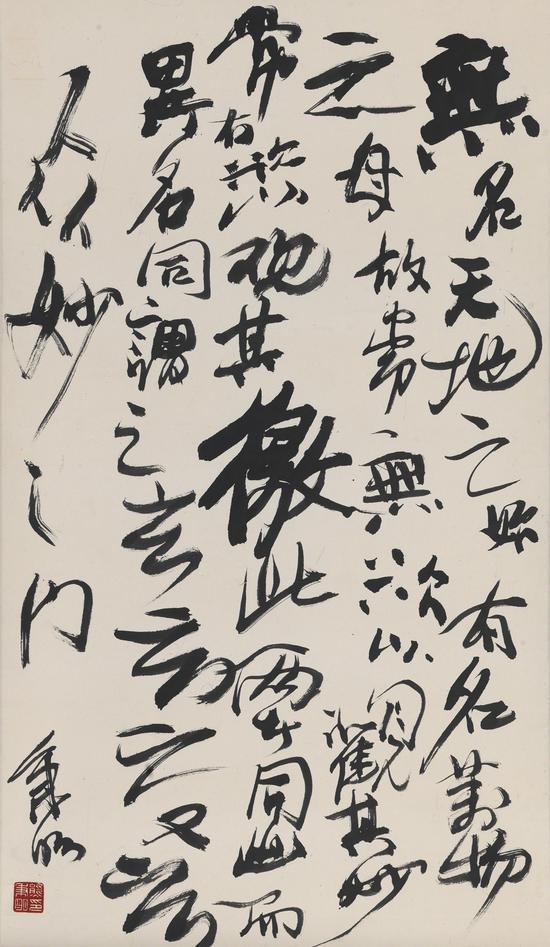 無名天地之始有名萬物
之母故常無欲以觀其妙
常有欲以觀其徼此兩者同出而
異名同謂之玄玄之又玄
众妙之門
秉明